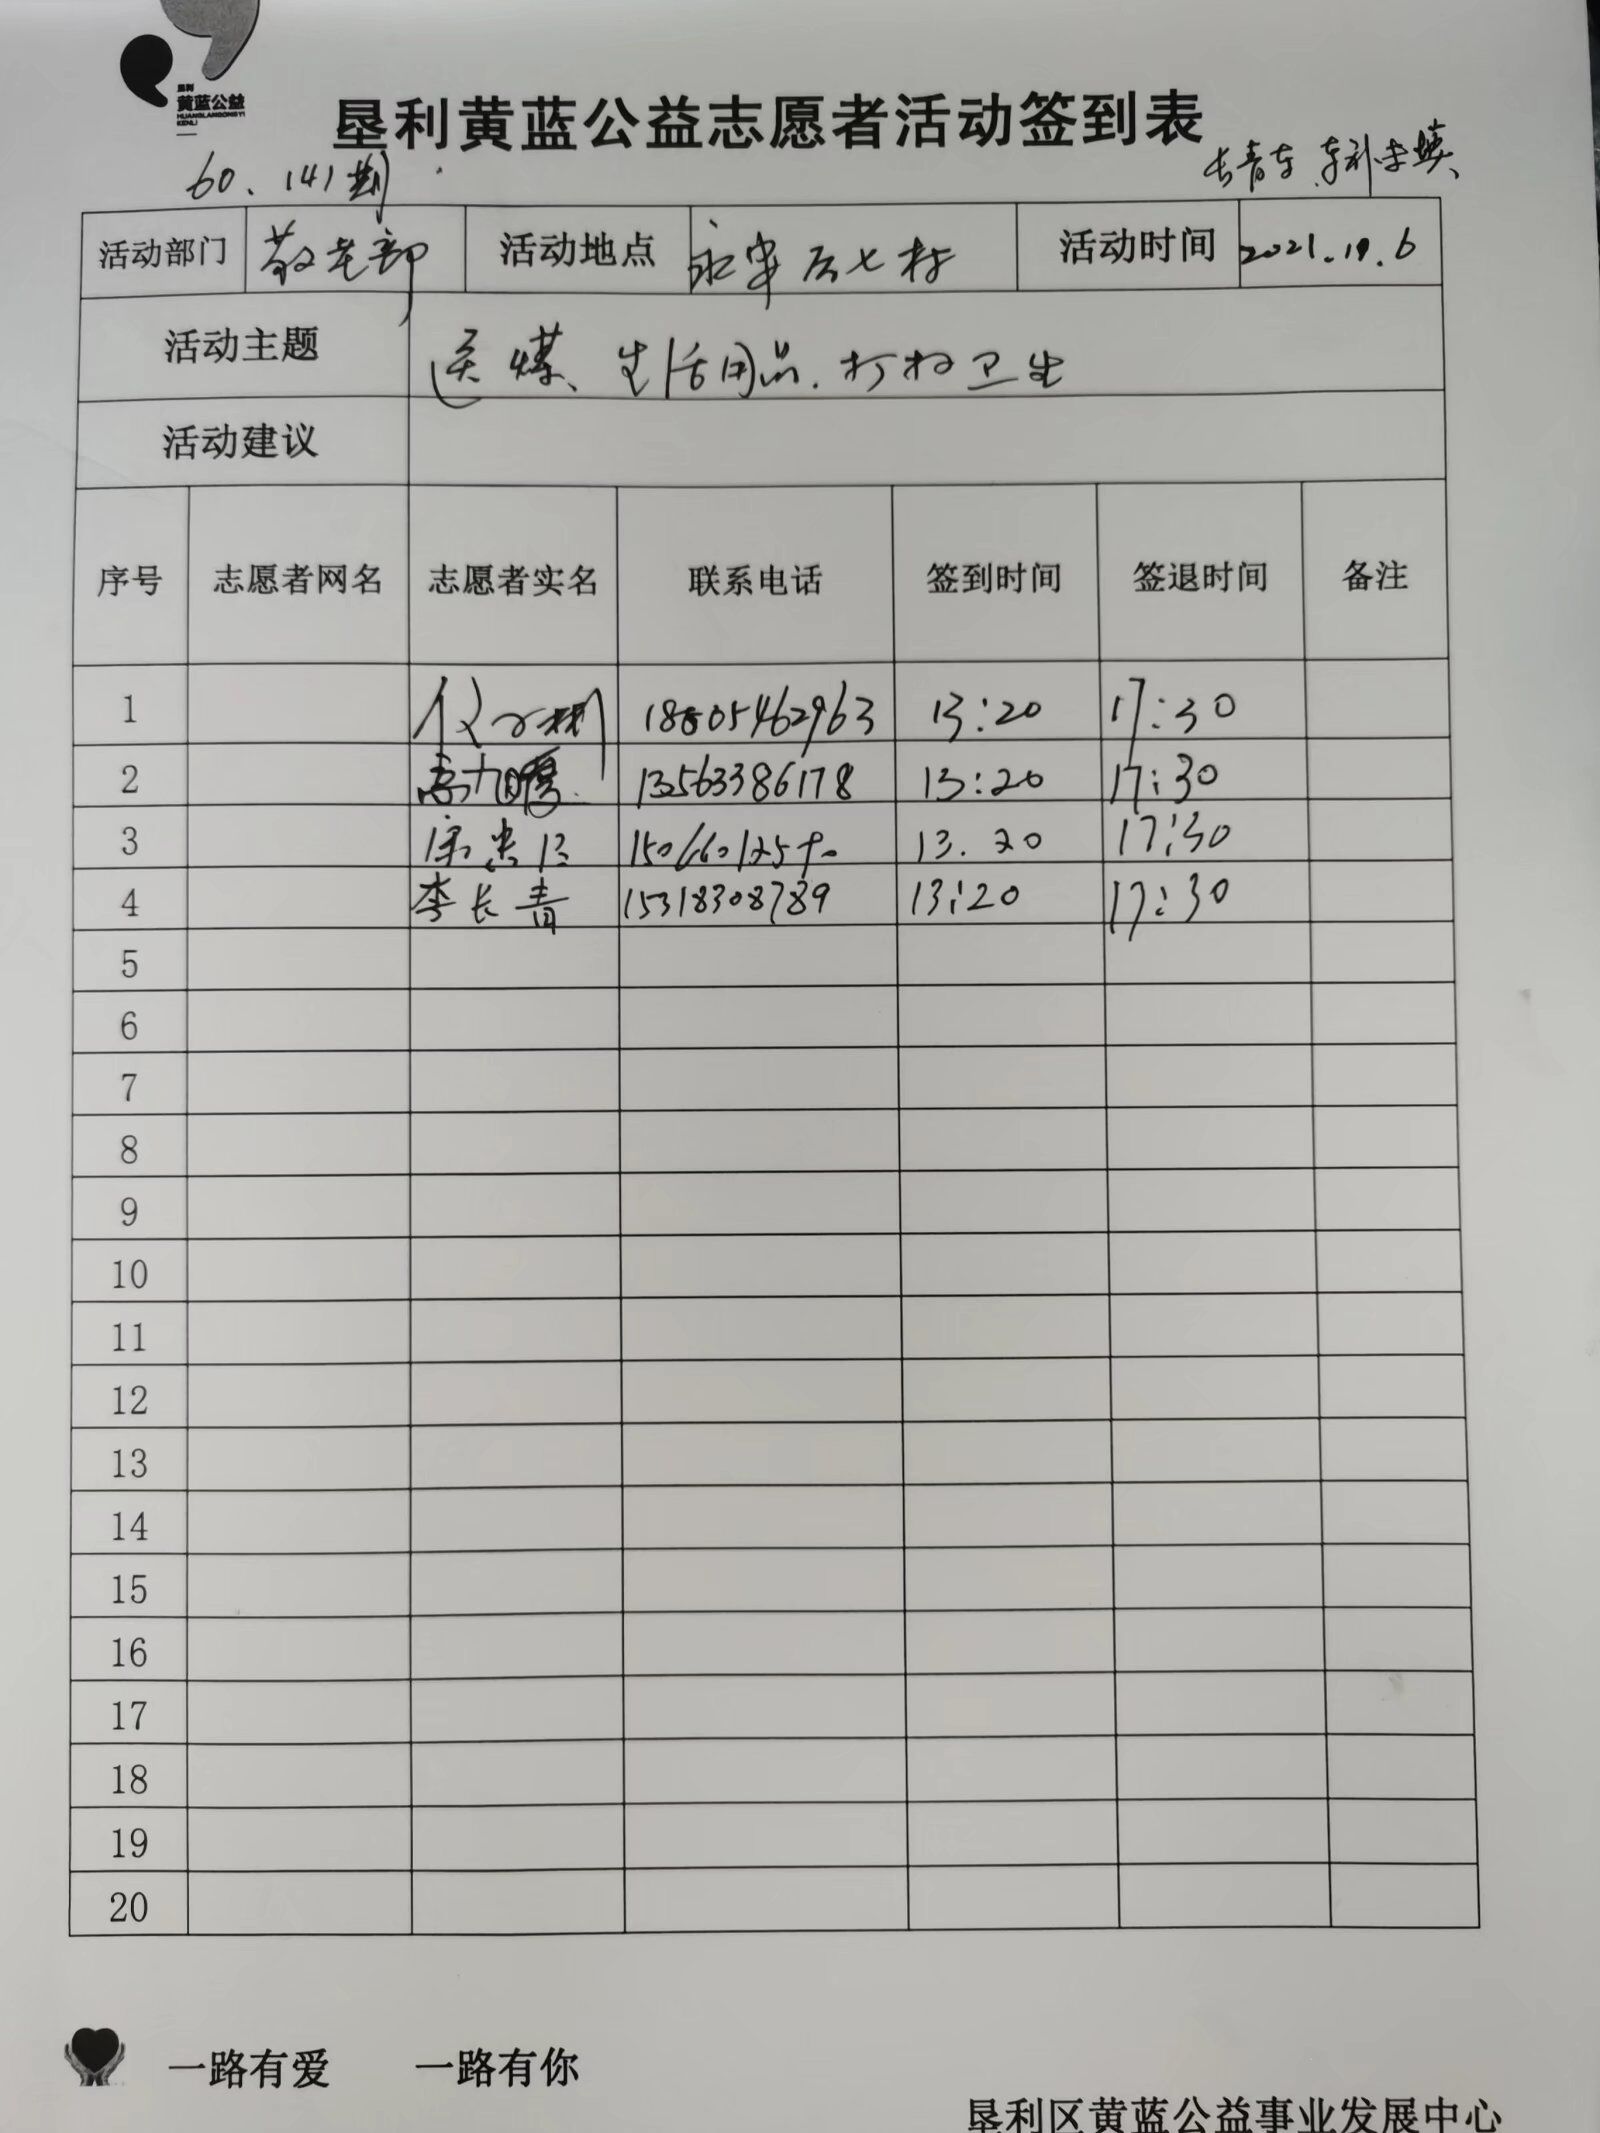 垦利
黄蓝公益
HUANGLANGONGYI
KENLI
垦利黄蓝公益志愿者活动签到表
60、141期 长青车
活动部门 敬老部 活动地点 永安后七村 活动时间 2021.19.6
活动主题 送煤、生活用品、打扫卫生
活动建议
序号 志愿者网名 志愿者实名 联系电话 签到时间 签退时间 备注
1 13:20 17:30
2 13563386178 13:20 17:30
3 13.20 17:30
4 李长青 15318308789 13:20 17:30
5
6
7
8
9
10
11
12
13
14
15
16
17
18
19
20
一路有爱 一路有你
垦利区黄蓝公益事业发展中心